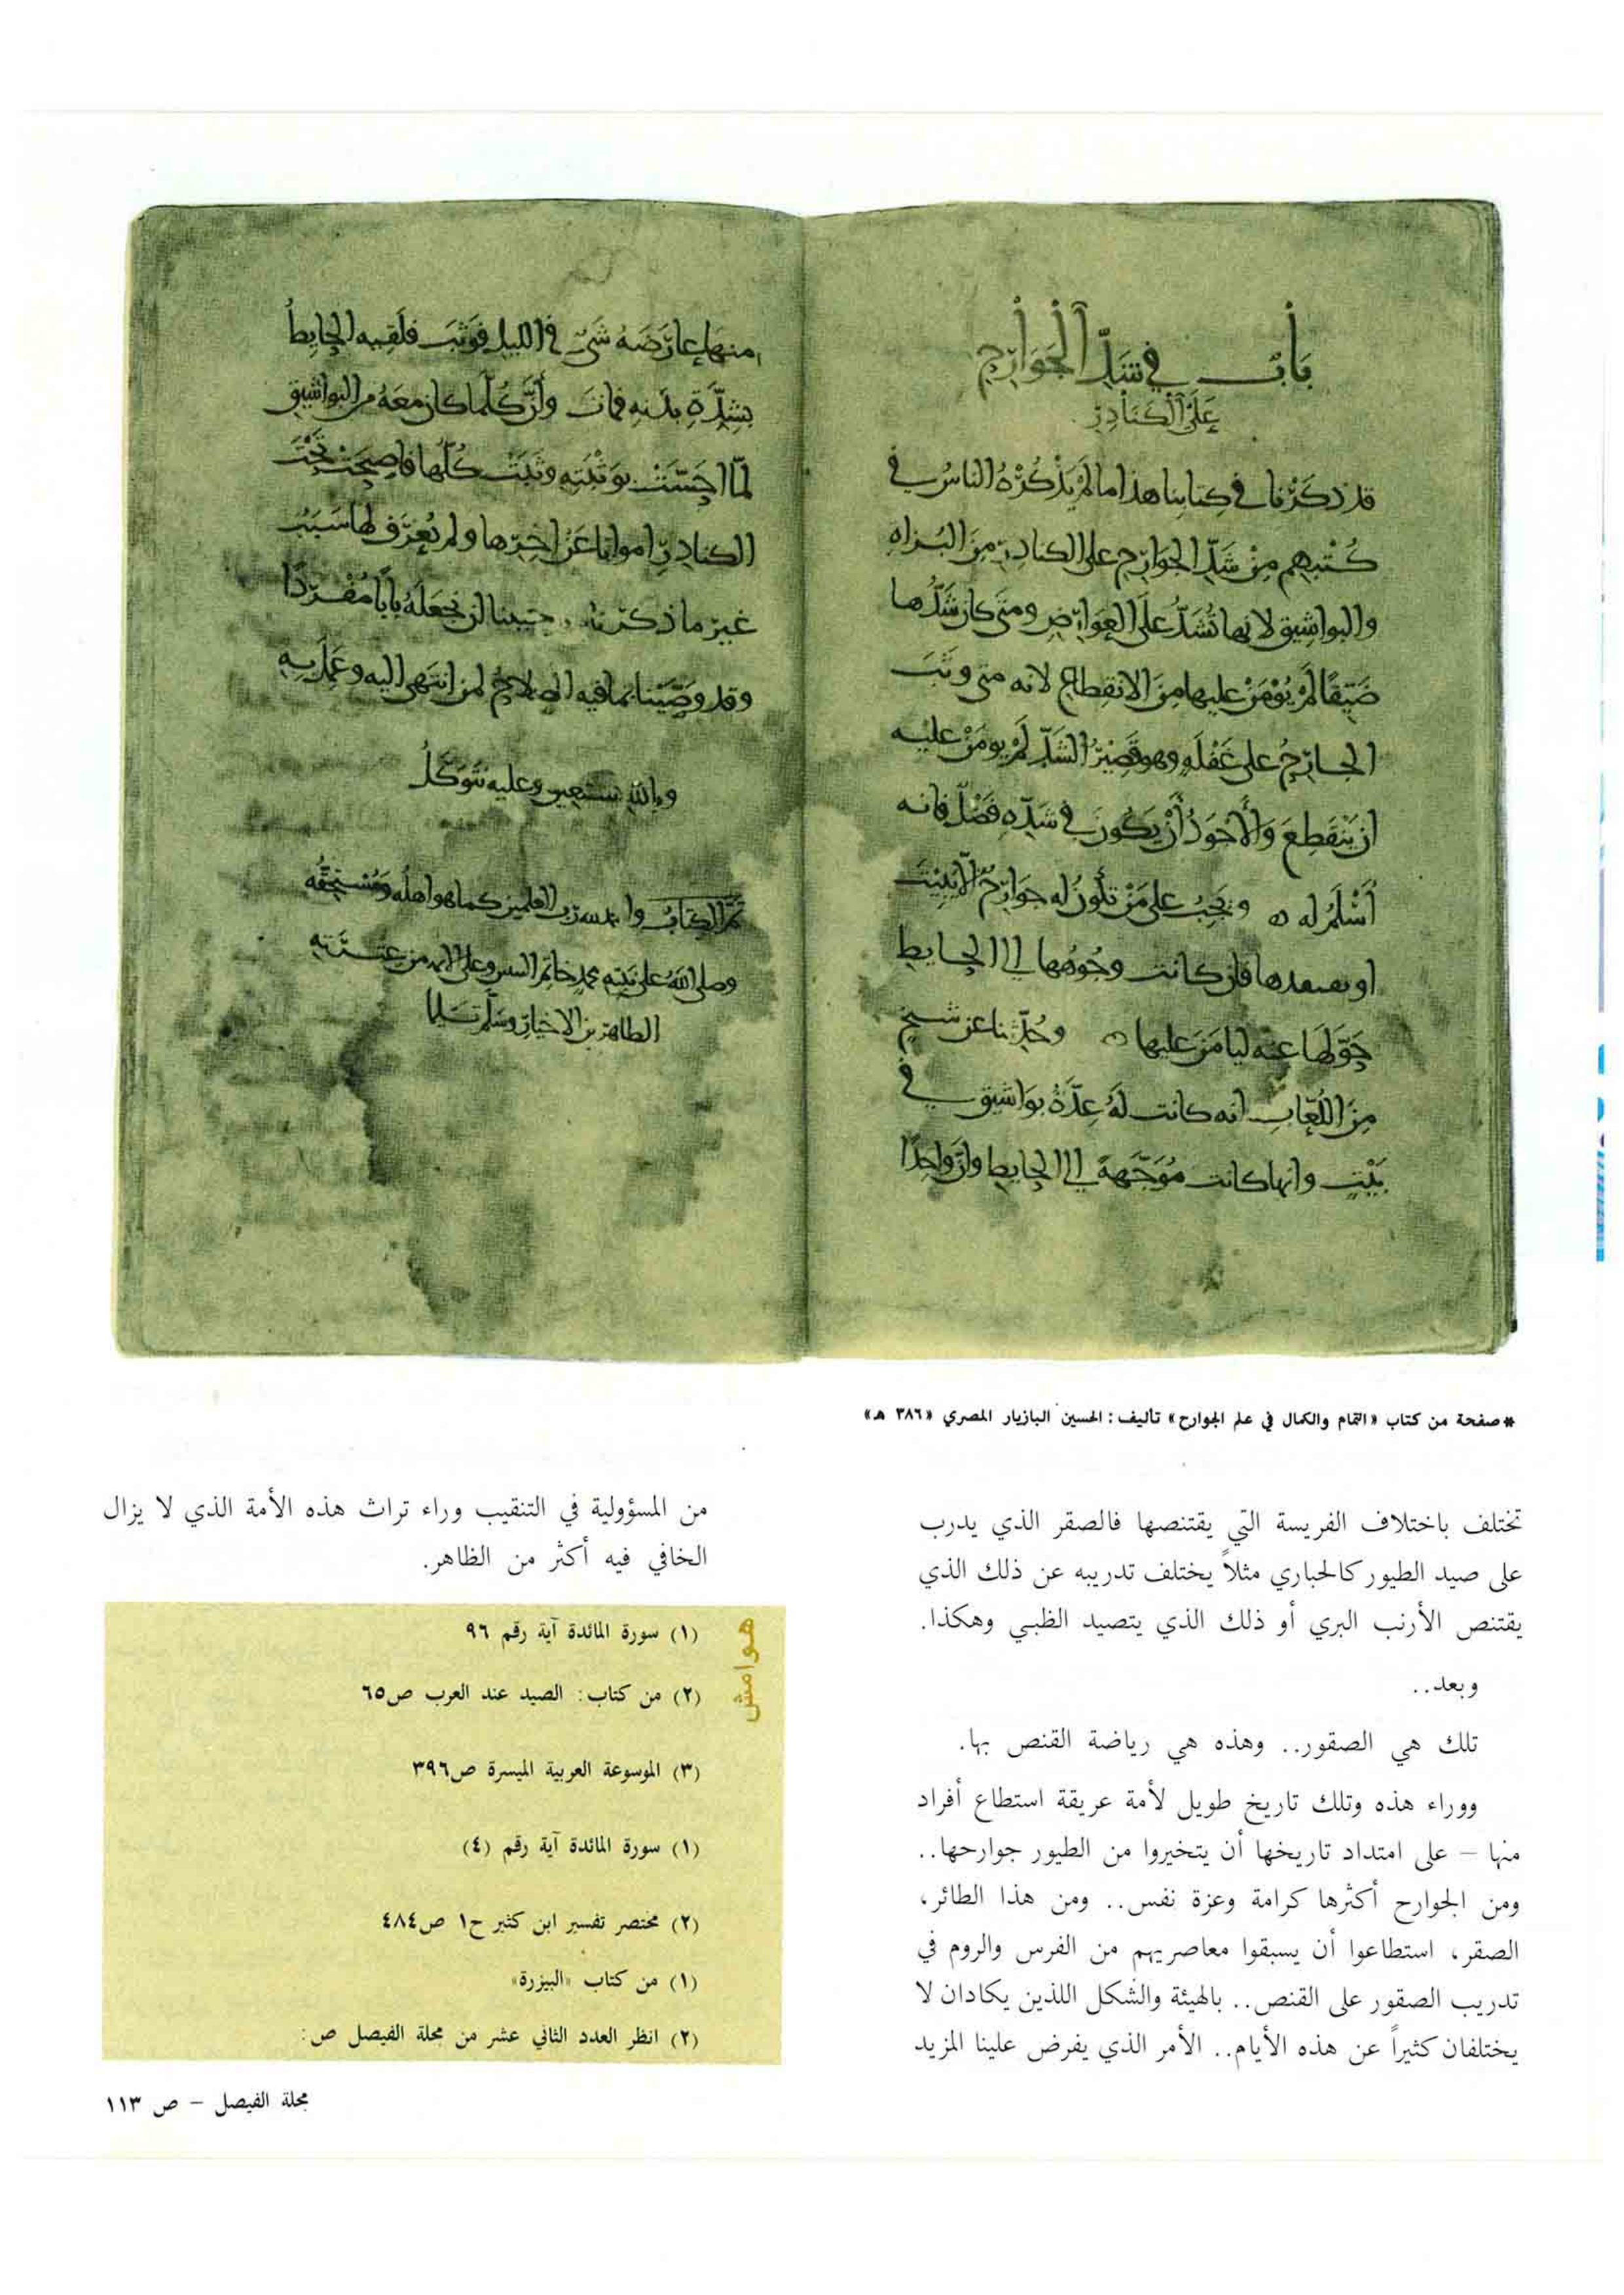 باب في شد الجوارح
على الكنادر
قد ذكرنا في كتابنا هذا ما لم يذكره الناس في
كتبهم من شد الجوارح على الكنادر من البزاه
والبواشيق لانها تشد على العوارض ومتى كان شدها
ضيقا لم يؤمن عليها من الانقطاع لانه متى وثب
الجارح على غفله وهو قصير الشد لم يومن عليه
ان ينقطع والأجود أن يكون في شده فضل فانه
أسلم له ويجب على من تكون له جوارح ألا يبيت
او يصعدها فان كانت وجوهها الى الحايط
حولها عنه ليامن عليها وحدثنا عن شيخ
من اللعاب انه كانت له عدة بواشيق في
بيت وانها كانت موجهة الى الحايط وان واحدا
منها عارضه شي في الليل فوثب فلقيه الحايط
بشدة بدنه فمات وأن كلما كان معه من البواشيق
لما احست بوثبته وثبت كلها فاصبحت تحت
الكنادر امواتا عن اخرها ولم يعرف لها سبب
غير ما ذكرناه حبينا ان نجعله بابا مفردا
وقد وصينا بما فيه الصلاح لمن انتهى اليه وعمل به
وبالله نستعين وعليه نتوكل
تم الكتاب والحمد لله رب العلمين كما هو اهله ومستحقه
وصلى الله على نبيه محمد خاتم النبيين وعلى الايمه من عترته
الطاهرين الاخيار وسلم تسليما
* صفحة من كتاب «التمام والكمال في علم الجوارح» تأليف: الحسين البازيار المصري «٣٨٦ هـ»
تختلف باختلاف الفريسة التي يقتنصها فالصقر الذي يدرب
على صيد الطيور كالحباري مثلاً يختلف تدريبه عن ذلك الذي
يقتنص الأرنب البري أو ذلك الذي يتصيد الظبي وهكذا.
وبعد..
تلك هي الصقور.. وهذه هي رياضة القنص بها.
ووراء هذه وتلك تاريخ طويل لأمة عريقة استطاع أفراد
منها – على امتداد تاريخها أن يتخيروا من الطيور جوارحها..
ومن الجوارح أكثرها كرامة وعزة نفس.. ومن هذا الطائر،
الصقر، استطاعوا أن يسبقوا معاصريهم من الفرس والروم في
تدريب الصقور على القنص.. بالهيئة والشكل اللذين يكادان لا
يختلفان كثيراً عن هذه الأيام.. الأمر الذي يفرض علينا المزيد
من المسؤولية في التنقيب وراء تراث هذه الأمة الذي لا يزال
الخافي فيه أكثر من الظاهر.
هوامش
(١) سورة المائدة آية رقم ٩٦
(٢) من كتاب: الصيد عند العرب ص٦٥
(٣) الموسوعة العربية الميسرة ص٣٩٦
(١) سورة المائدة آية رقم (٤)
(٢) مختصر تفسير ابن كثير ح١ ص٤٨٤
(١) من كتاب «البيزرة»
(٢) انظر العدد الثاني عشر من مجلة الفيصل ص:
مجلة الفيصل – ص ١١٣